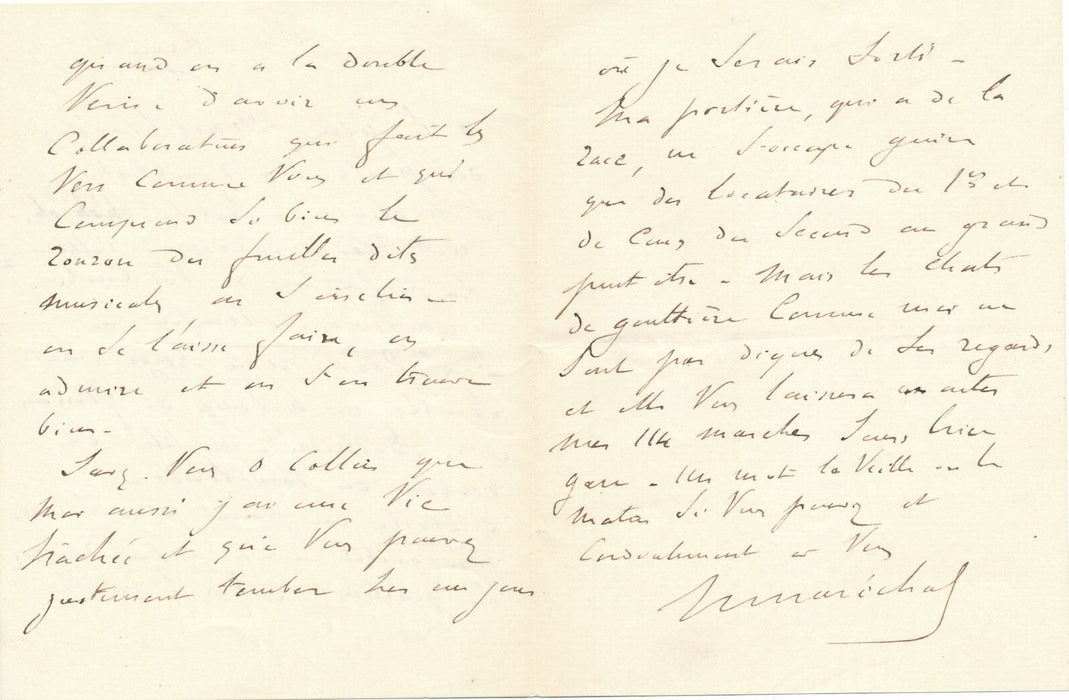 quand on a la double
Veine d'avoir un
Collaborateur qui fait les
Vers Comme Vous et qui
Comprend Si bien le
ronron des feuilles dites
musicales on
on Se laisse faire, on
admire et on S'en trouve
bien -
Vous ô Collin que
moi aussi j'ai une Vie
hachée et que Vous pouvez
justement tomber chez un jour
où je Serais Sorti -
Ma portière, qui a de la
race, ne S'occupe guère
que des locataires du 1er et
de Ceux du Second au grand
peut être - Mais les chats
de gouttière Comme moi ne
Sont pas dignes de Ses regards
et elle Vous laissera monter
mes 114 marches Sans crier
gare - Un mot la Veille ou le
matin Si Vous pouvez et
Cordialement à Vous
H Maréchal